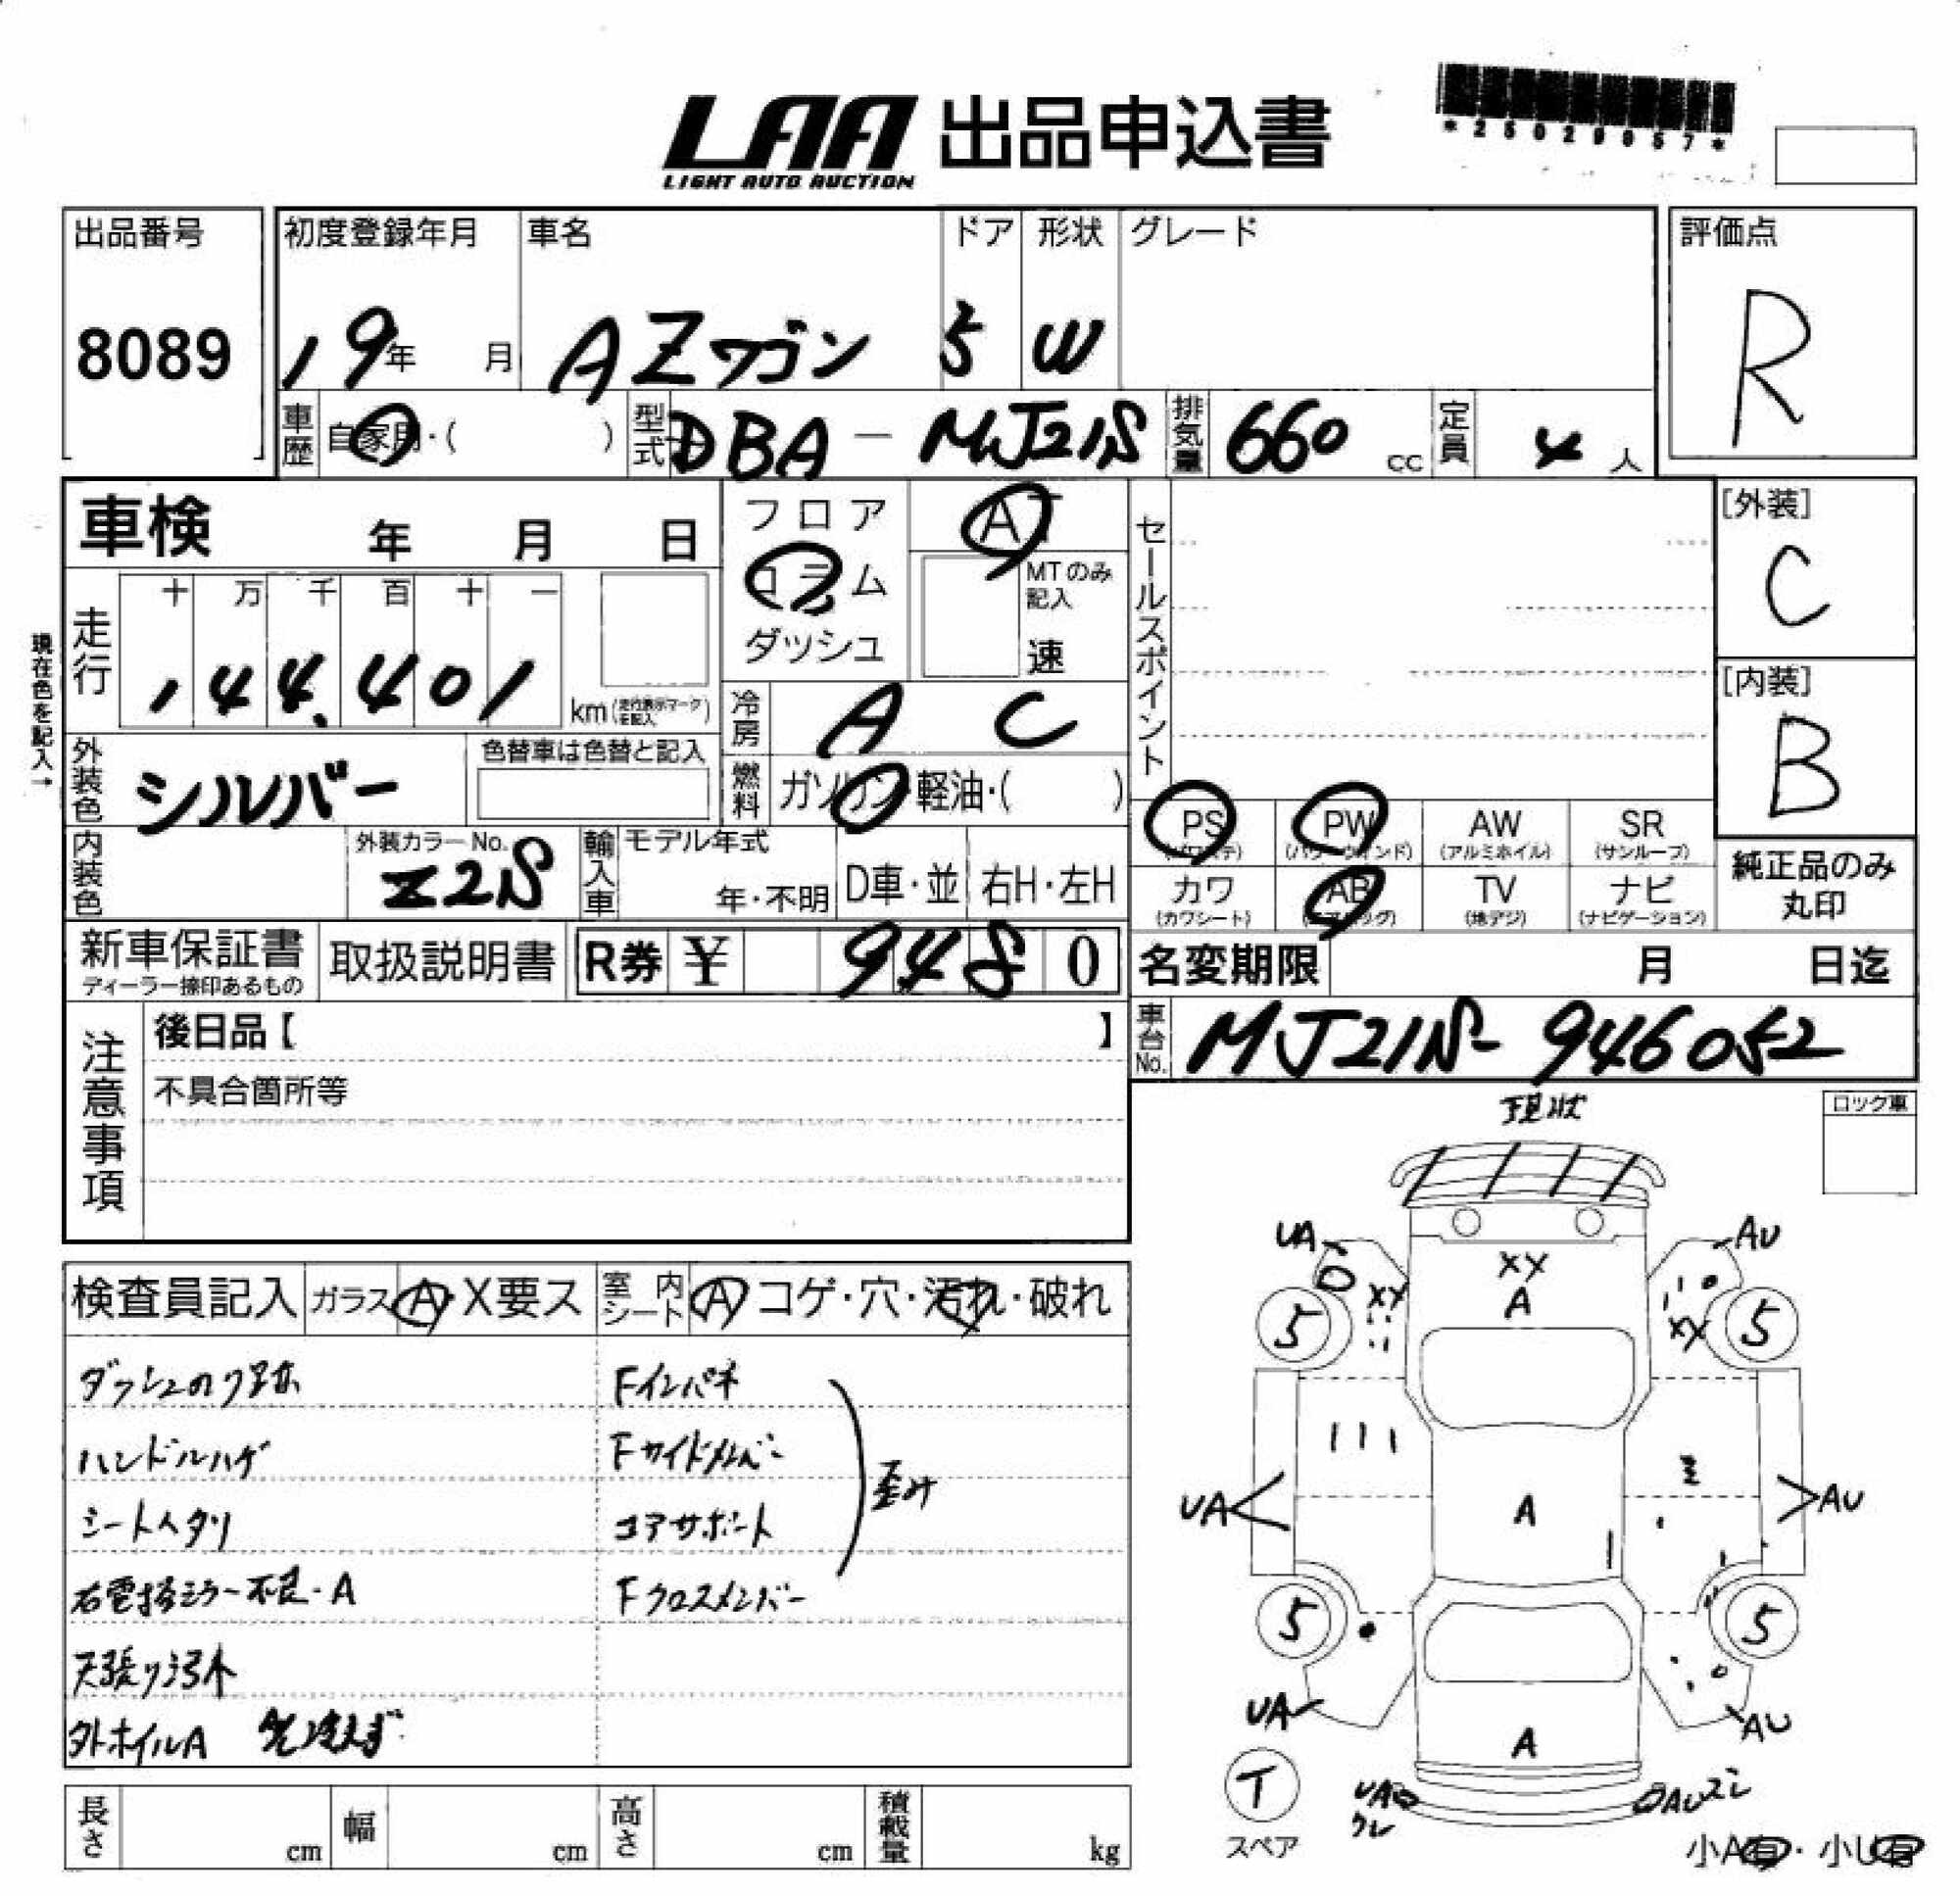 LAA 出品申込書
LIGHT AUTO AUCTION
*25029957*
出品番号
8089
初度登録年月
19年 月
車名
AZワゴン
ドア
5
形状
W
グレード
評価点
R
車歴 自家用・( )
型式 DBA-MJ21S
排気量 660 cc
定員 4 人
[外装]
C
[内装]
B
車検 年 月 日
フロア
コラム
ダッシュ
AT
MTのみ記入
速
セールスポイント
現在色を記入→
走行
十 万 千 百 十 一
144,401
km(走行表示マークを記入)
冷房 A C
外装色 シルバー
色替車は色替と記入
燃料 ガソリン・軽油・( )
内装色
外装カラーNo.
Z2S
輸入車
モデル年式
年・不明
D車・並
右H・左H
PS
(パワステ)
PW
(パワーウインド)
AW
(アルミホイル)
SR
(サンルーフ)
カワ
(カワシート)
AB
(エアバッグ)
TV
(地デジ)
ナビ
(ナビゲーション)
純正品のみ
丸印
新車保証書
ディーラー捺印あるもの
取扱説明書
R券 ¥ 9480
名変期限 月 日迄
車台No. MJ21S-946052
注意事項
後日品【 】
不具合箇所等
現状
ロック車
検査員記入
ガラス A・X要ス
室内シート A コゲ・穴・汚れ・破れ
ダッシュのり跡
ハンドルハゲ
シートヘタリ
右電格ミラー不良・A
天張り汚れ
外ホイルA
Fインパネ
Fサイドメンバー
コアサポート
歪み
Fクロスメンバー
UA
AU
XX
XX
A
XX
5
5
UA
A
AU
5
5
UA
A
AU
T
スペア
UA
ワレ
AUズレ
小A有・小U有
長さ cm
幅 cm
高さ cm
積載量 kg